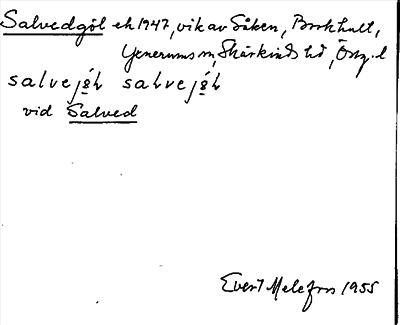 Salvedgöl ek 1947, vik av Såken, Borkhult,
Yxnerums sn, Skärkinds hd, Östg. l
salvejö̲́l salvejö̲́l
vid Salved
Evert Melefors 1955